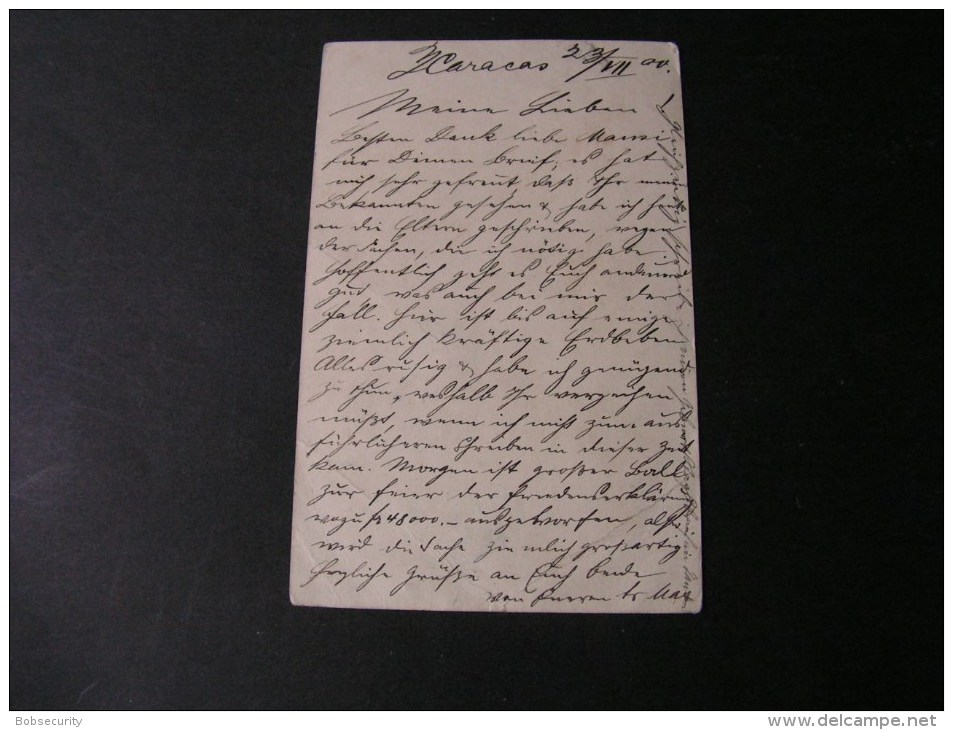 Caracas 23/VII 00.
Meine Lieben
Besten Dank liebe
für Deinen Brief, es hat
mich sehr gefreut, daß Ihr meine
Bekannten gesehen & habe ich heute
an die Eltern geschrieben, wegen
der Sachen, die ich nötig habe.
Hoffentlich geht es Euch andauernd
gut, was auch bei mir der
Fall. Hier ist bis auf einige
ziemlich kräftige Erdbeben
Alles ruhig & habe ich genügend
zu thun, weshalb Ihr verzeihen
müßt, wenn ich nicht zum aus
führlicheren Schreiben in dieser Zeit
kam. Morgen ist großer Ball
zur Feier der Friedenserklärung
wozu 48000.- ausgeworfen, also
wird die Sache ziemlich großartig
Herzliche Grüße an Euch beide
von Eurem Max
Bobsecurity
delcampe.net